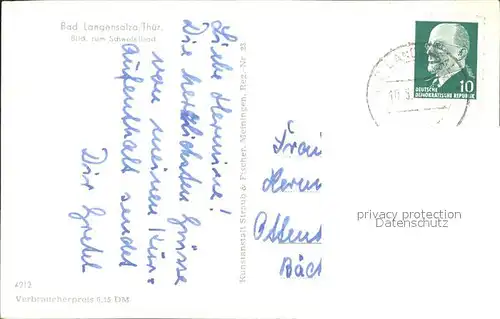 Bad Langensalza/Thür.
Blick zum Schwefelbad
Liebe Hermine!
Die herzlichsten Grüsse
von meinen Kur-
aufenthalt sendet
Dir Gretel
Kunstanstalt Straub & Fischer, Meiningen, Reg.-Nr. 23
DEUTSCHE
DEMOKRATISCHE REPUBLIK
10
Frau
Herm
Ottens
Bäck
privacy protection
Datenschutz
4212
Verbraucherpreis 0,15 DM